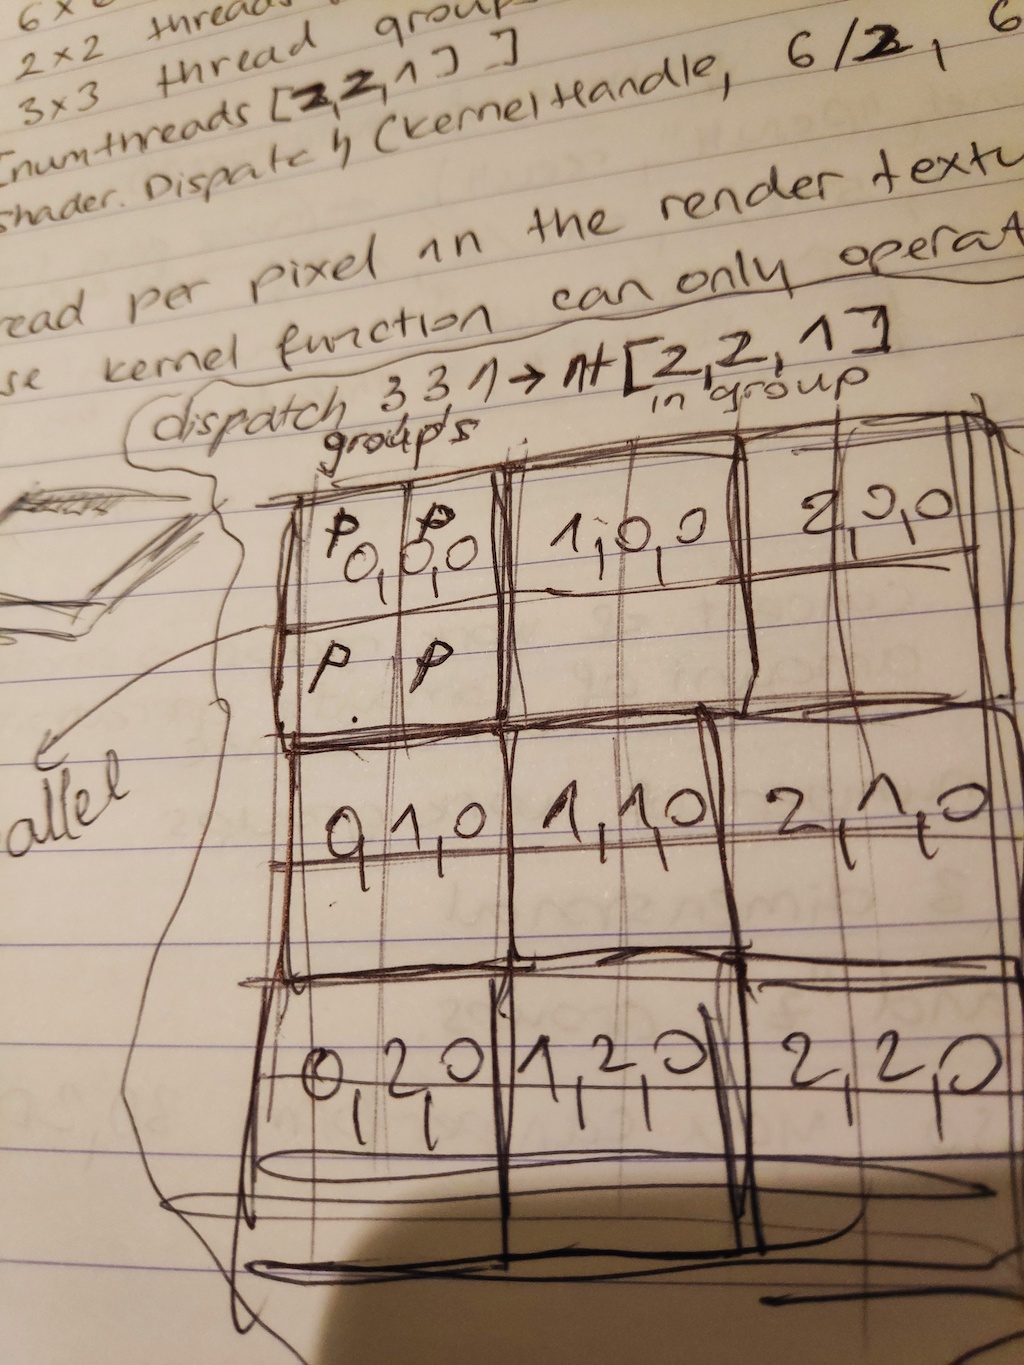 6 x
2x2 threads
3x3 thread group
[numthreads [2,2,1] ]
shader. Dispatch (kernelHandle, 6/2, 6
ead per pixel in the render textu
se kernel function can only operat
dispatch 3 3,1 → nt [2,2,1]
groups in group
P P
0,0,0 1,0,0 2,0,0
P P
allel
0,1,0 1,1,0 2,1,0
0,2,0 1,2,0 2,2,0